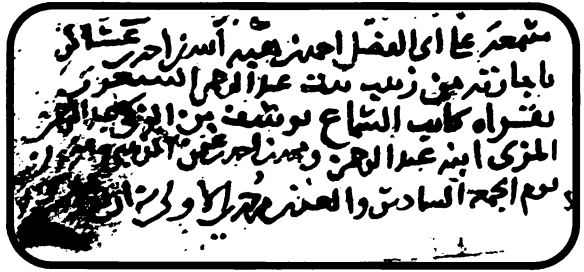 سمعه على أبي الفضل احمد بن هبة الله بن احمد بن عساكر
باجازته من زينب بنت عبد الرحمن الشعري
بقراءة كاتب السماع يوسف بن الزكي عبد الرحمن
المزي ابنه عبد الرحمن ومحمد بن احمد بن
يوم الجمعة السادس والعشرين جمدى الاولى سنة